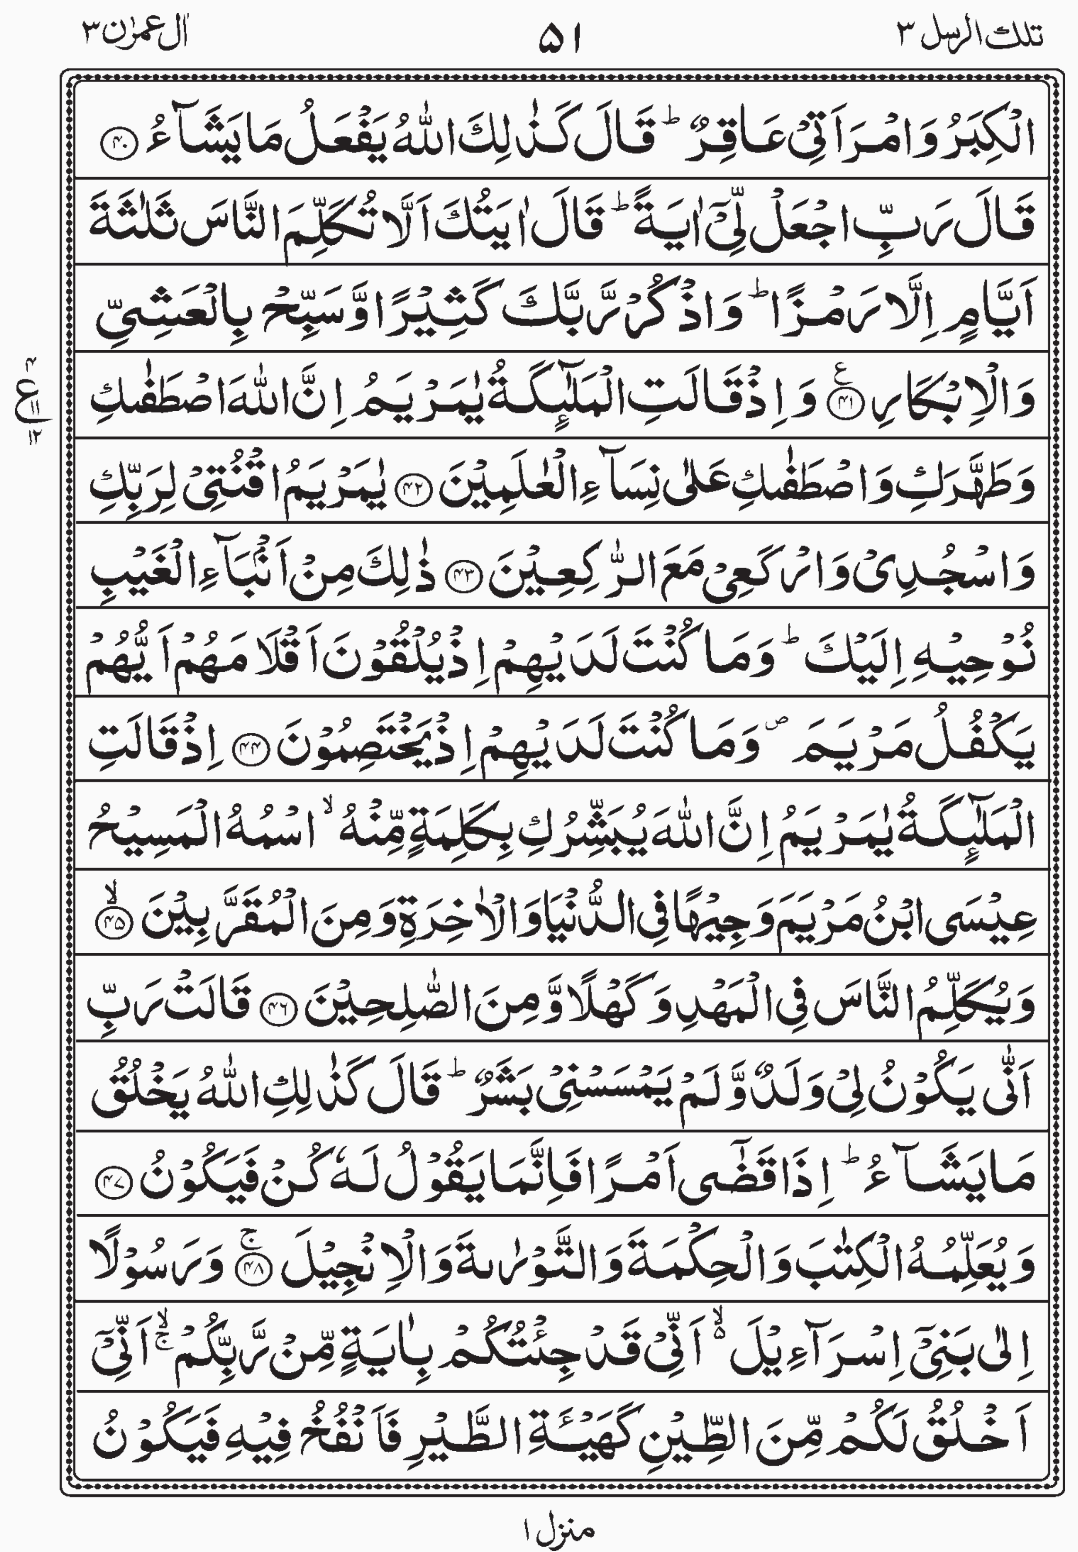 تلك الرسل ٣ ۵۱ اٰل عمرٰن ٣
الْكِبَرُ وَامْرَاَتِیْ عَاقِرٌ ؕ قَالَ كَذٰلِكَ اللّٰهُ یَفْعَلُ مَا یَشَآءُ ﴿۴۰﴾
قَالَ رَبِّ اجْعَلْ لِّیْۤ اٰیَةً ؕ قَالَ اٰیَتُكَ اَلَّا تُكَلِّمَ النَّاسَ ثَلٰثَةَ
اَیَّامٍ اِلَّا رَمْزًا ؕ وَاذْكُرْ رَّبَّكَ كَثِیْرًا وَّسَبِّحْ بِالْعَشِیِّ
وَالْاِبْكَارِ ﴿۴۱﴾ ع وَاِذْ قَالَتِ الْمَلٰٓئِكَةُ یٰمَرْیَمُ اِنَّ اللّٰهَ اصْطَفٰىكِ
۴ ع ۱۱ ۱۲
وَطَهَّرَكِ وَاصْطَفٰىكِ عَلٰی نِسَآءِ الْعٰلَمِیْنَ ﴿۴۲﴾ یٰمَرْیَمُ اقْنُتِیْ لِرَبِّكِ
وَاسْجُدِیْ وَارْكَعِیْ مَعَ الرّٰكِعِیْنَ ﴿۴۳﴾ ذٰلِكَ مِنْ اَنْۢبَآءِ الْغَیْبِ
نُوْحِیْهِ اِلَیْكَ ؕ وَمَا كُنْتَ لَدَیْهِمْ اِذْ یُلْقُوْنَ اَقْلَامَهُمْ اَیُّهُمْ
یَكْفُلُ مَرْیَمَ ۪ وَمَا كُنْتَ لَدَیْهِمْ اِذْ یَخْتَصِمُوْنَ ﴿۴۴﴾ اِذْ قَالَتِ
الْمَلٰٓئِكَةُ یٰمَرْیَمُ اِنَّ اللّٰهَ یُبَشِّرُكِ بِكَلِمَةٍ مِّنْهُ ۙ اسْمُهُ الْمَسِیْحُ
عِیْسَی ابْنُ مَرْیَمَ وَجِیْهًا فِی الدُّنْیَا وَالْاٰخِرَةِ وَمِنَ الْمُقَرَّبِیْنَ ﴿۴۵﴾ ۙ
وَیُكَلِّمُ النَّاسَ فِی الْمَهْدِ وَكَهْلًا وَّمِنَ الصّٰلِحِیْنَ ﴿۴۶﴾ قَالَتْ رَبِّ
اَنّٰی یَكُوْنُ لِیْ وَلَدٌ وَّلَمْ یَمْسَسْنِیْ بَشَرٌ ؕ قَالَ كَذٰلِكِ اللّٰهُ یَخْلُقُ
مَا یَشَآءُ ؕ اِذَا قَضٰۤی اَمْرًا فَاِنَّمَا یَقُوْلُ لَهٗ كُنْ فَیَكُوْنُ ﴿۴۷﴾
وَیُعَلِّمُهُ الْكِتٰبَ وَالْحِكْمَةَ وَالتَّوْرٰىةَ وَالْاِنْجِیْلَ ﴿۴۸﴾ ۚ وَرَسُوْلًا
اِلٰی بَنِیْۤ اِسْرَآءِیْلَ ۙ۬ اَنِّیْ قَدْ جِئْتُكُمْ بِاٰیَةٍ مِّنْ رَّبِّكُمْ ۙۚ اَنِّیْۤ
اَخْلُقُ لَكُمْ مِّنَ الطِّیْنِ كَهَیْـَٔةِ الطَّیْرِ فَاَنْفُخُ فِیْهِ فَیَكُوْنُ
منزل ۱